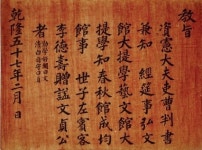 教旨
資憲大夫吏曹判書
兼知 經筵事弘文
館大提學藝文館大
提學知春秋館成均
館事 世子左賓客
李德壽贈諡文貞公
者 勤學好問曰文
乾隆五十七年二月 日